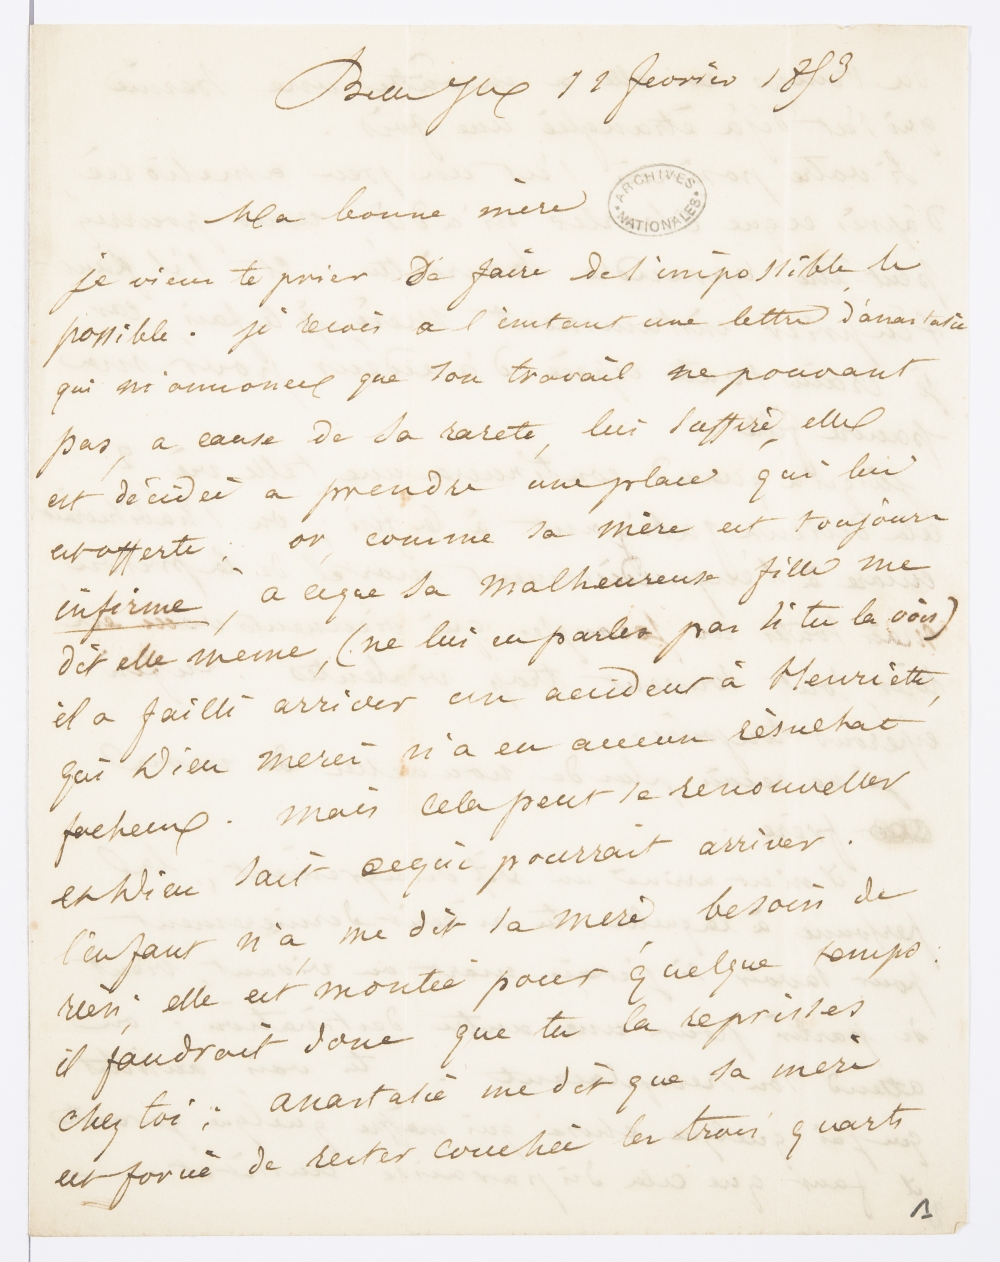 Belle Isle 11 fevrier 1853
ARCHIVES NATIONALES
Ma bonne mère
je viens te prier de faire de l'impossible, le
possible. je recois a l'instant une lettre d'anastasie
qui m'annonce que son travail ne pouvant
pas, a cause de sa rareté, lui suffire, elle
est décideé a prendre une place qui lui
est offerte; or, comme sa mère est toujours
infirme, à ceque sa malheureuse fille me
dit elle meme, (ne lui en parles pas si tu la vois)
il a failli arriver un accident à Henriette,
qui Dieu merci n'a eu aucun résultat
facheux. mais cela peut se renouveller
et Dieu sait cequi pourrait arriver.
l'enfant n'a, me dit sa mere, besoin de
rien; elle est montée pour quelque temps:
il faudrait donc que tu la reprisses
chez toi; anastasie me dit que sa mere
est forcé de rester couchée les trois quarts
1